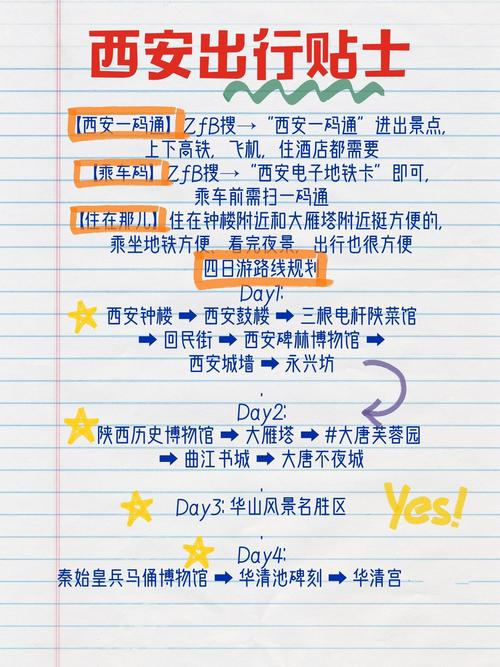 西安出行贴士
【西安一码通】ZfB搜→“西安一码通”进出景点,
上下高铁，飞机，住酒店都需要
【乘车码】ZfB搜→“西安电子地铁卡”即可,
乘车前需扫一码通
【住在那儿】住在钟楼附近和大雁塔附近挺方便的,
乘坐地铁方便、看完夜景，出行也很方便
四日游路线规划
Day1:
西安钟楼➡西安鼓楼➡三根电杆陕菜馆
➡回民街➡西安碑林博物馆➡
西安城墙➡永兴坊
.
Day2:
陕西历史博物馆➡大雁塔➡#大唐芙蓉园
➡曲江书城➡大唐不夜城
.
Day3: 华山风景名胜区
Yes!
.
Day4:
秦始皇兵马俑博物馆➡华清池碑刻➡华清宫